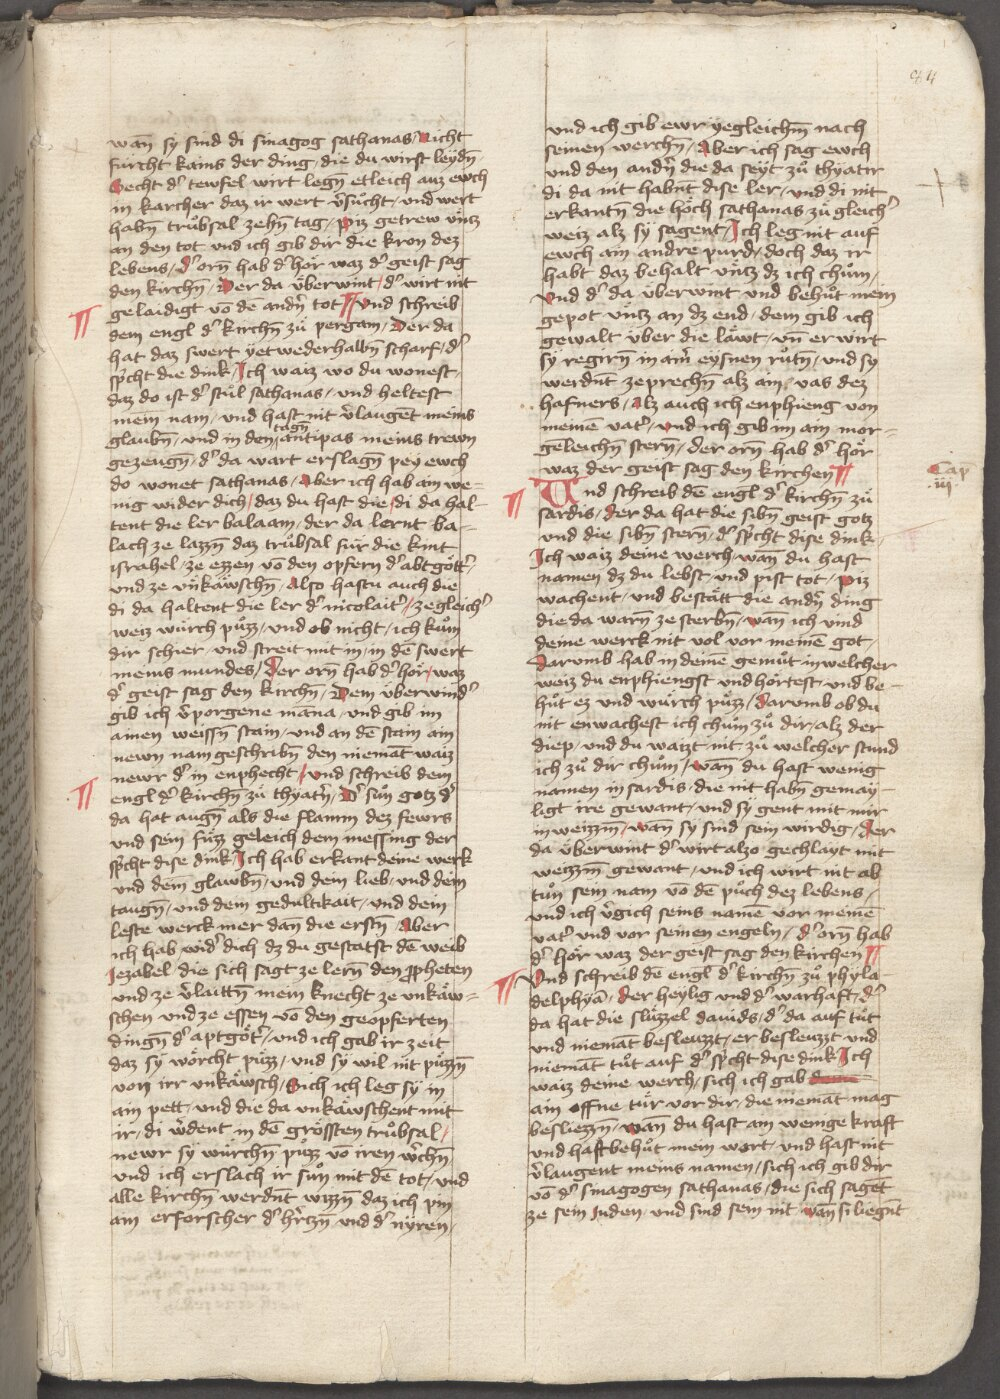 84
wan̄ sy sind di sinagog sathanas / Nicht
fürcht kains der ding / die du wirst leydn̄ /
Secht d' tewfel wirt legn̄ etleich auz ewch
in karcher daz ir wert v̄sůcht / und wert
habn̄ trůbsal zehn̄ tag / piz getrew uncz
an den tot und ich gib dir die kron dez
lebens / d' orn̄ hab d' hör waz d' geist sag
den kirchn̄ / Der da überwint / d' wirt nit
gelaidigt vō dē andn̄ tot ¶ Und schreib
dem engl d' kirchn̄ zů pergam / Der da
hat daz swert yetwederhalbn̄ scharf / d'
spͥcht die dink / Ich waiz wo du wonest /
daz do ist d' stůl sathanas / und heltest
mein nam / und hast nit v̄lauget meins
glaubn̄ / und in den tagn̄ antipas meins trewn
gezeugn̄ / d' da wart erslagn̄ pey ewch
do wonet sathanas / Aber ich hab am we-
nig wider dich / daz du hast die / di da hal-
tent die ler balaam / der da lernt ba-
lach ze lazzn̄ daz trůbsal für die kint
israhel / ze ezzen vō den opfern d' abtgött'
und ze unkäwschn̄ / Also hastu auch die
di da haltent die ler d' nicolait' / ze gleich'
weiz würch půzz / und ob nicht / ich kům
dir schier / und streit mit in / in dē swert
meins mundes / Der orn̄ hab d' hör / waz
d' geist sag den kirchn̄ / Dem überwind'
gib ich v̄porgene māna / und gib im
ainen weissn̄ stain / und an dē stain ain
newn nam geschribn̄ den niemāt waiz
newr d' in enphecht / und schreib dem
engl d' kirchn̄ zů thyatr̄ / D' sun gotz d'
da hat augn̄ als die flamm dez fewrs
und sein füzz geleich dem messing der
spͥcht dise dink / Ich hab erkant deine werk
und dein glawbn̄ / und dein lieb / und dein
taugn̄ / und dein gedultikait / und dein
leste werck mer dan̄ die erstn̄ / Aber
ich hab wid' dich dz du gestatst dē weib
Jezabel die sich sagt ze lern̄ den ppheten
und ze v̄laittn̄ mein knecht ze unkäw-
schen und ze essen vō den geopferten
dingn̄ d' aptgött' / und ich gab ir zeit
daz sy wörcht půzz / und sy wil nit půzzn̄
von irr unkäwsch / Sich ich leg sy in
ain pett / und die da unkäwschent mit
ir / di w̄dent in dē grössten trůbsal /
newr sy würchn̄ půzz vō iren w̄chn̄
und ich erslach ir sun mit dē tot / und
alle kirchn̄ werdnt wizzn̄ daz ich pin
ain erforscher d' hr̄czn̄ und d' nyren /
und ich gib ewr yegleichm̄ nach
seinen werchn̄ / Aber ich sag ewch
und den andn̄ die da seyt zů thyatir
di da nit habnt dise ler / und di nit
erkantn̄ die höch sathanas zů gleich'
weiz alz sy sagent / Ich leg nit auf
ewch ain andre purd / doch daz ir
habt daz behalt uncz dz ich chům /
Und d' da überwint und behůt mein
gepot uncz an dz end / dem gib ich
gewalt über die läwt / un̄ er wirt
sy regirn in ain' eysnen růtn̄ / und sy
werdnt zeprechn̄ alz ain / vas dez
hafners / Alz auch ich enphieng von
meine vat' / und ich gib im am mor-
geleichn̄ stern̄ / der orn̄ hab d' hör
waz der geist sag den kirchen ¶
Cap
iii
Und schreib dē engl d' kirchn̄ zů
sardis / der da hat die sibn̄ geist gotz
und die sibn̄ stern̄ / d' spͥcht dise dink /
Ich waiz deine werch / wan̄ du hast
namen dz du lebst / und pist tot / piz
wachent / und bestätt die andn̄ ding
die da warn̄ ze sterbn̄ / wan̄ ich vind
deine werck nit vol vor meinē got /
Darumb hab in deinē gemůt in welcher
weiz du enphiengst und hörtest / und be-
hůt ez und würch půzz / Darumb ob du
nit enwachest ich chům zů dir / alz der
diep / und du waizt nit zů welcher stund
ich zů dir chům / wan̄ du hast wenig
namen in sardis / die nit habn̄ gemay-
ligt ire gewant / und sy gent mit mir
in weizzm̄ / wan̄ sy sind sein wirdig / Der
da überwint d' wirt alzo gechlayt mit
weizzm̄ gewant / und ich wirt nit ab
tůn sein nam vō dē půch dez lebens /
und ich v̄gich seins namē vor meinē
vat' und vor seinen engeln / d' orn̄ hab
d' hör waz der geist sag den kirchen ¶
Und schreib dē engl d' kirchn̄ zů phyla-
delphyā / der heylig und d' warhaft / d'
da hat die slüzzel dauids / d' da auf tůt
und niemāt besleuzzt / er besleuzzt und
niemāt tůt auf / d' spͥcht dise dink / Ich
waiz deine werch / sich ich gab
ain offne tür vor dir / die niemāt mag
besliezzn̄ / wan̄ du hast ain wenige kraft
und hast behůt mein wort / und hast nit
v̄laugent meins namen / sich ich gib dir
vō d' sinagogen sathanas / die sich saget
ze sein Juden / und sind sein nit / wan̄ si liegnt